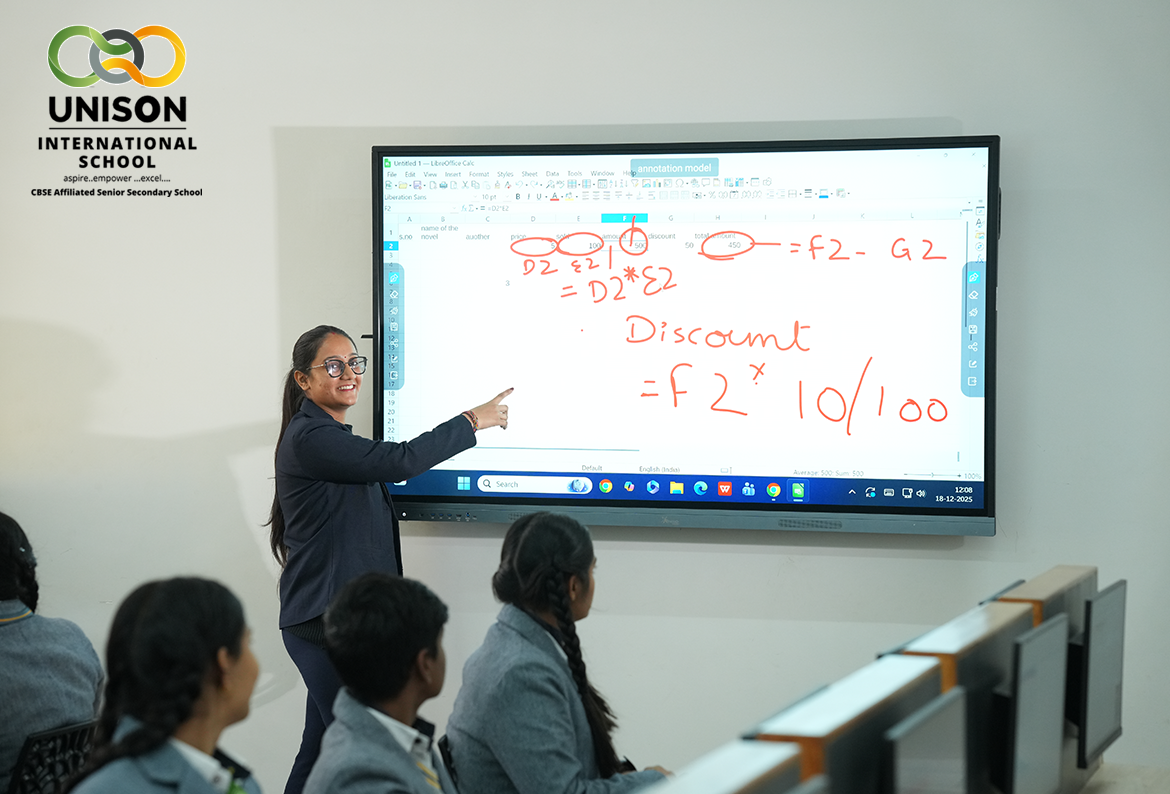 UNISON
INTERNATIONAL
SCHOOL
aspire..empower ...excel....
CBSE Affiliated Senior Secondary School
Untitled 1 — LibreOffice Calc
annotation model
File Edit View Insert Format Styles Sheet Data Tools Window Help
Liberation Sans 10 pt
F2
A B C D E F G H I J K
1 s.no name of the novel auother price sold amount discount total amount
2 5 100 500 50 450
= F2 - G2
D2 E2
= D2*E2
3
Discount
= F2 * 10/100
Default English (India) Average: 500; Sum: 500 100%
Search
12:08
18-12-2025